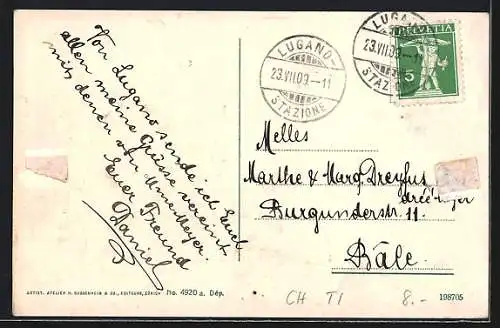 Von Lugano sende ich Euch
allen meine Grüsse vereint
mit denen von Mme Meyer.
Euer Freund
Daniel
LUGANO
23.VII.09.-11
STAZIONE
LUGANO
23.VII.09.-11
STAZIONE
HELVETIA
5
Melles
Marthe & Marg. Dreyfus
Burgunderstr. 11.
Bâle.
ARTIST. ATELIER H. GUGGENHEIM & CO., EDITEURS, ZÜRICH No. 4920 a. Dép.
CH TI 8.-
198705